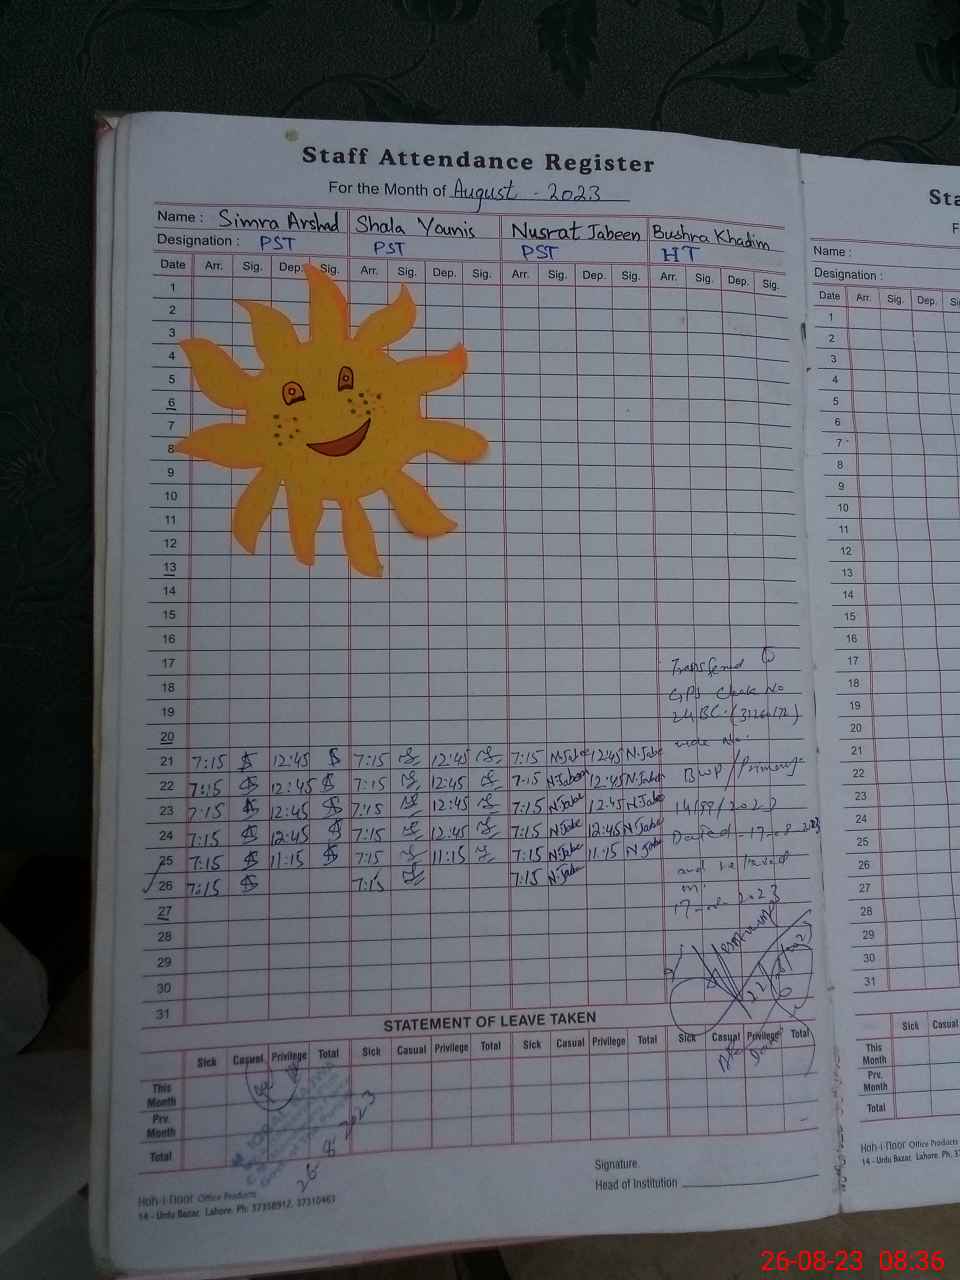 Staff Attendance Register
For the Month of August - 2023
Name : Simra Arshad Shala Younis Nusrat Jabeen Bushra Khadim
Designation : PST PST PST HT
Date Arr. Sig. Dep. Sig. Arr. Sig. Dep. Sig. Arr. Sig. Dep. Sig. Arr. Sig. Dep. Sig.
1
2
3
4
5
6
7
8
9
10
11
12
13
14
15
16
17
18
19
20
21 7:15 12:45 7:15 12:45 7:15 N.Jabe 12:45 N.Jabe
22 7:15 12:45 7:15 12:45 7:15 N.Jabeen 12:45 N.Jabe
23 7:15 12:45 7:15 12:45 7:15 N.Jabe 12:45 N.Jabe
24 7:15 12:45 7:15 12:45 7:15 N.Jabe 12:45 N.Jabe
25 7:15 11:15 7:15 11:15 7:15 N.Jabe 11:15 N.Jabe
26 7:15 7:15 7:15 N.Jabe
27
28
29
30
31
Transferred
GPS Chak No
24BC
vide No.
BWP/Primary
Dated 17-08-2023
and relieved
17-08-2023
STATEMENT OF LEAVE TAKEN
Sick Casual Privilege Total Sick Casual Privilege Total Sick Casual Privilege Total Sick Casual Privilege Total
This Month
Prv. Month
Total
26 8 2023
Signature.
Head of Institution
Hoh-i-noor Office Products
14 - Urdu Bazar, Lahore. Ph: 37358912, 37310463
Sta
F
Name :
Designation :
Date Arr. Sig. Dep. Si
1
2
3
4
5
6
7
8
9
10
11
12
13
14
15
16
17
18
19
20
21
22
23
24
25
26
27
28
29
30
31
Sick Casual
This Month
Prv. Month
Total
Hoh-i-noor Office Products
14 - Urdu Bazar, Lahore. Ph: 37
26-08-23 08:36